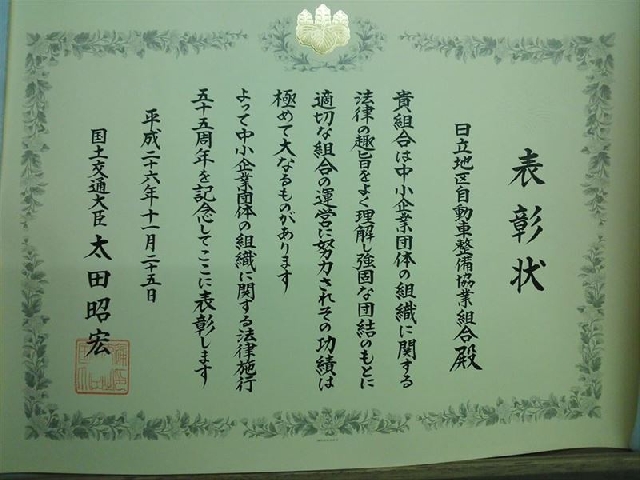 表彰状
日立地区自動車整備協業組合殿
貴組合は中小企業団体の組織に関する
法律の趣旨をよく理解し強固な団結のもとに
適切な組合の運営に努力されその功績は
極めて大なるものがあります
よって中小企業団体の組織に関する法律施行
五十五周年を記念してここに表彰します
平成二十六年十一月二十五日
国土交通大臣 太田昭宏